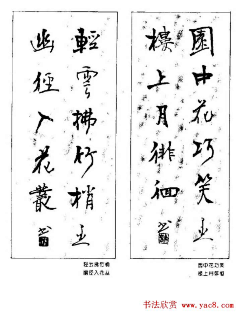 園中花巧笑
樓上月徘徊
輕雲拂竹梢
幽徑入花叢
园中花巧笑
楼上月徘徊
轻云拂竹梢
幽径入花丛
书法欣赏 www.yac8.com